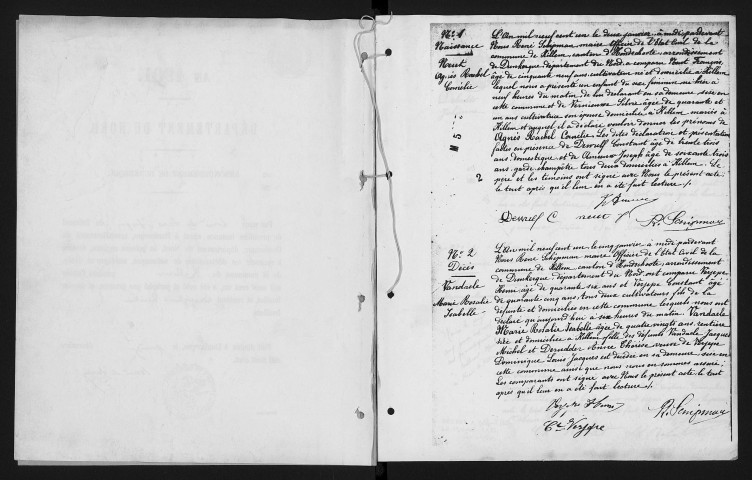 N° 1
Naissance
Neut
Agnès Rachel
Camélie
L'An mil neuf cent un le deux janvier à midi pardevant
Nous René Schipman maire Officier de l'Etat Civil de la
commune de Killem, canton d'Hondschoote, arrondissement
de Dunkerque, département du Nord, a comparu Neut François,
âgé de cinquante neuf ans cultivateur né et domicilié à Killem
lequel nous a présenté un enfant du sexe féminin né hier à
neuf heures du matin de lui déclarant en sa demeure sise en
cette commune et de Sylvie âgée de quarante et
un ans cultivatrice son épouse domiciliée à Killem mariés à
Killem et auquel il a déclaré vouloir donner les prénoms de
Agnès Rachel Camélie. Les dites déclaration et présentation
faites en présence de Devulf Constant âgé de trente trois
ans domestique et de Joseph âgé de soixante trois
ans garde champêtre tous deux domiciliés à Killem. Le
père et les témoins ont signé avec Nous le présent acte
le tout après qu'il leur en a été fait lecture /.
Devulf C neut f R. Schipman
2
N° 2
Décès
Vandaele
Marie Rosalie
Isabelle
L'An mil neuf cent un le cinq janvier à midi pardevant
Nous René Schipman maire Officier de l'Etat Civil de la
commune de Killem canton d'Hondschoote, arrondissement
de Dunkerque, département du Nord, ont comparu Verjepe
Henri âgé de quarante six ans et Verjepe Constant âgé
de quarante cinq ans, tous deux cultivateurs fils de la
défunte et domiciliés en cette commune lesquels nous ont
déclaré qu'aujourd'hui à six heures du matin Vandaele
Marie Rosalie Isabelle âgée de quatre vingt ans, rentière
née et domiciliée à Killem fille des défunts Vandaele Jacques
Michel et Derudder Anne Thérèse veuve de Verjepe
Dominique Louis Jacques est décédée en sa demeure sise en
cette commune ainsi que nous nous en sommes assuré ;
Les comparants ont signé avec Nous le présent acte le tout
après qu'il leur en a été fait lecture /.
R. Schipman
Ct Verjepe